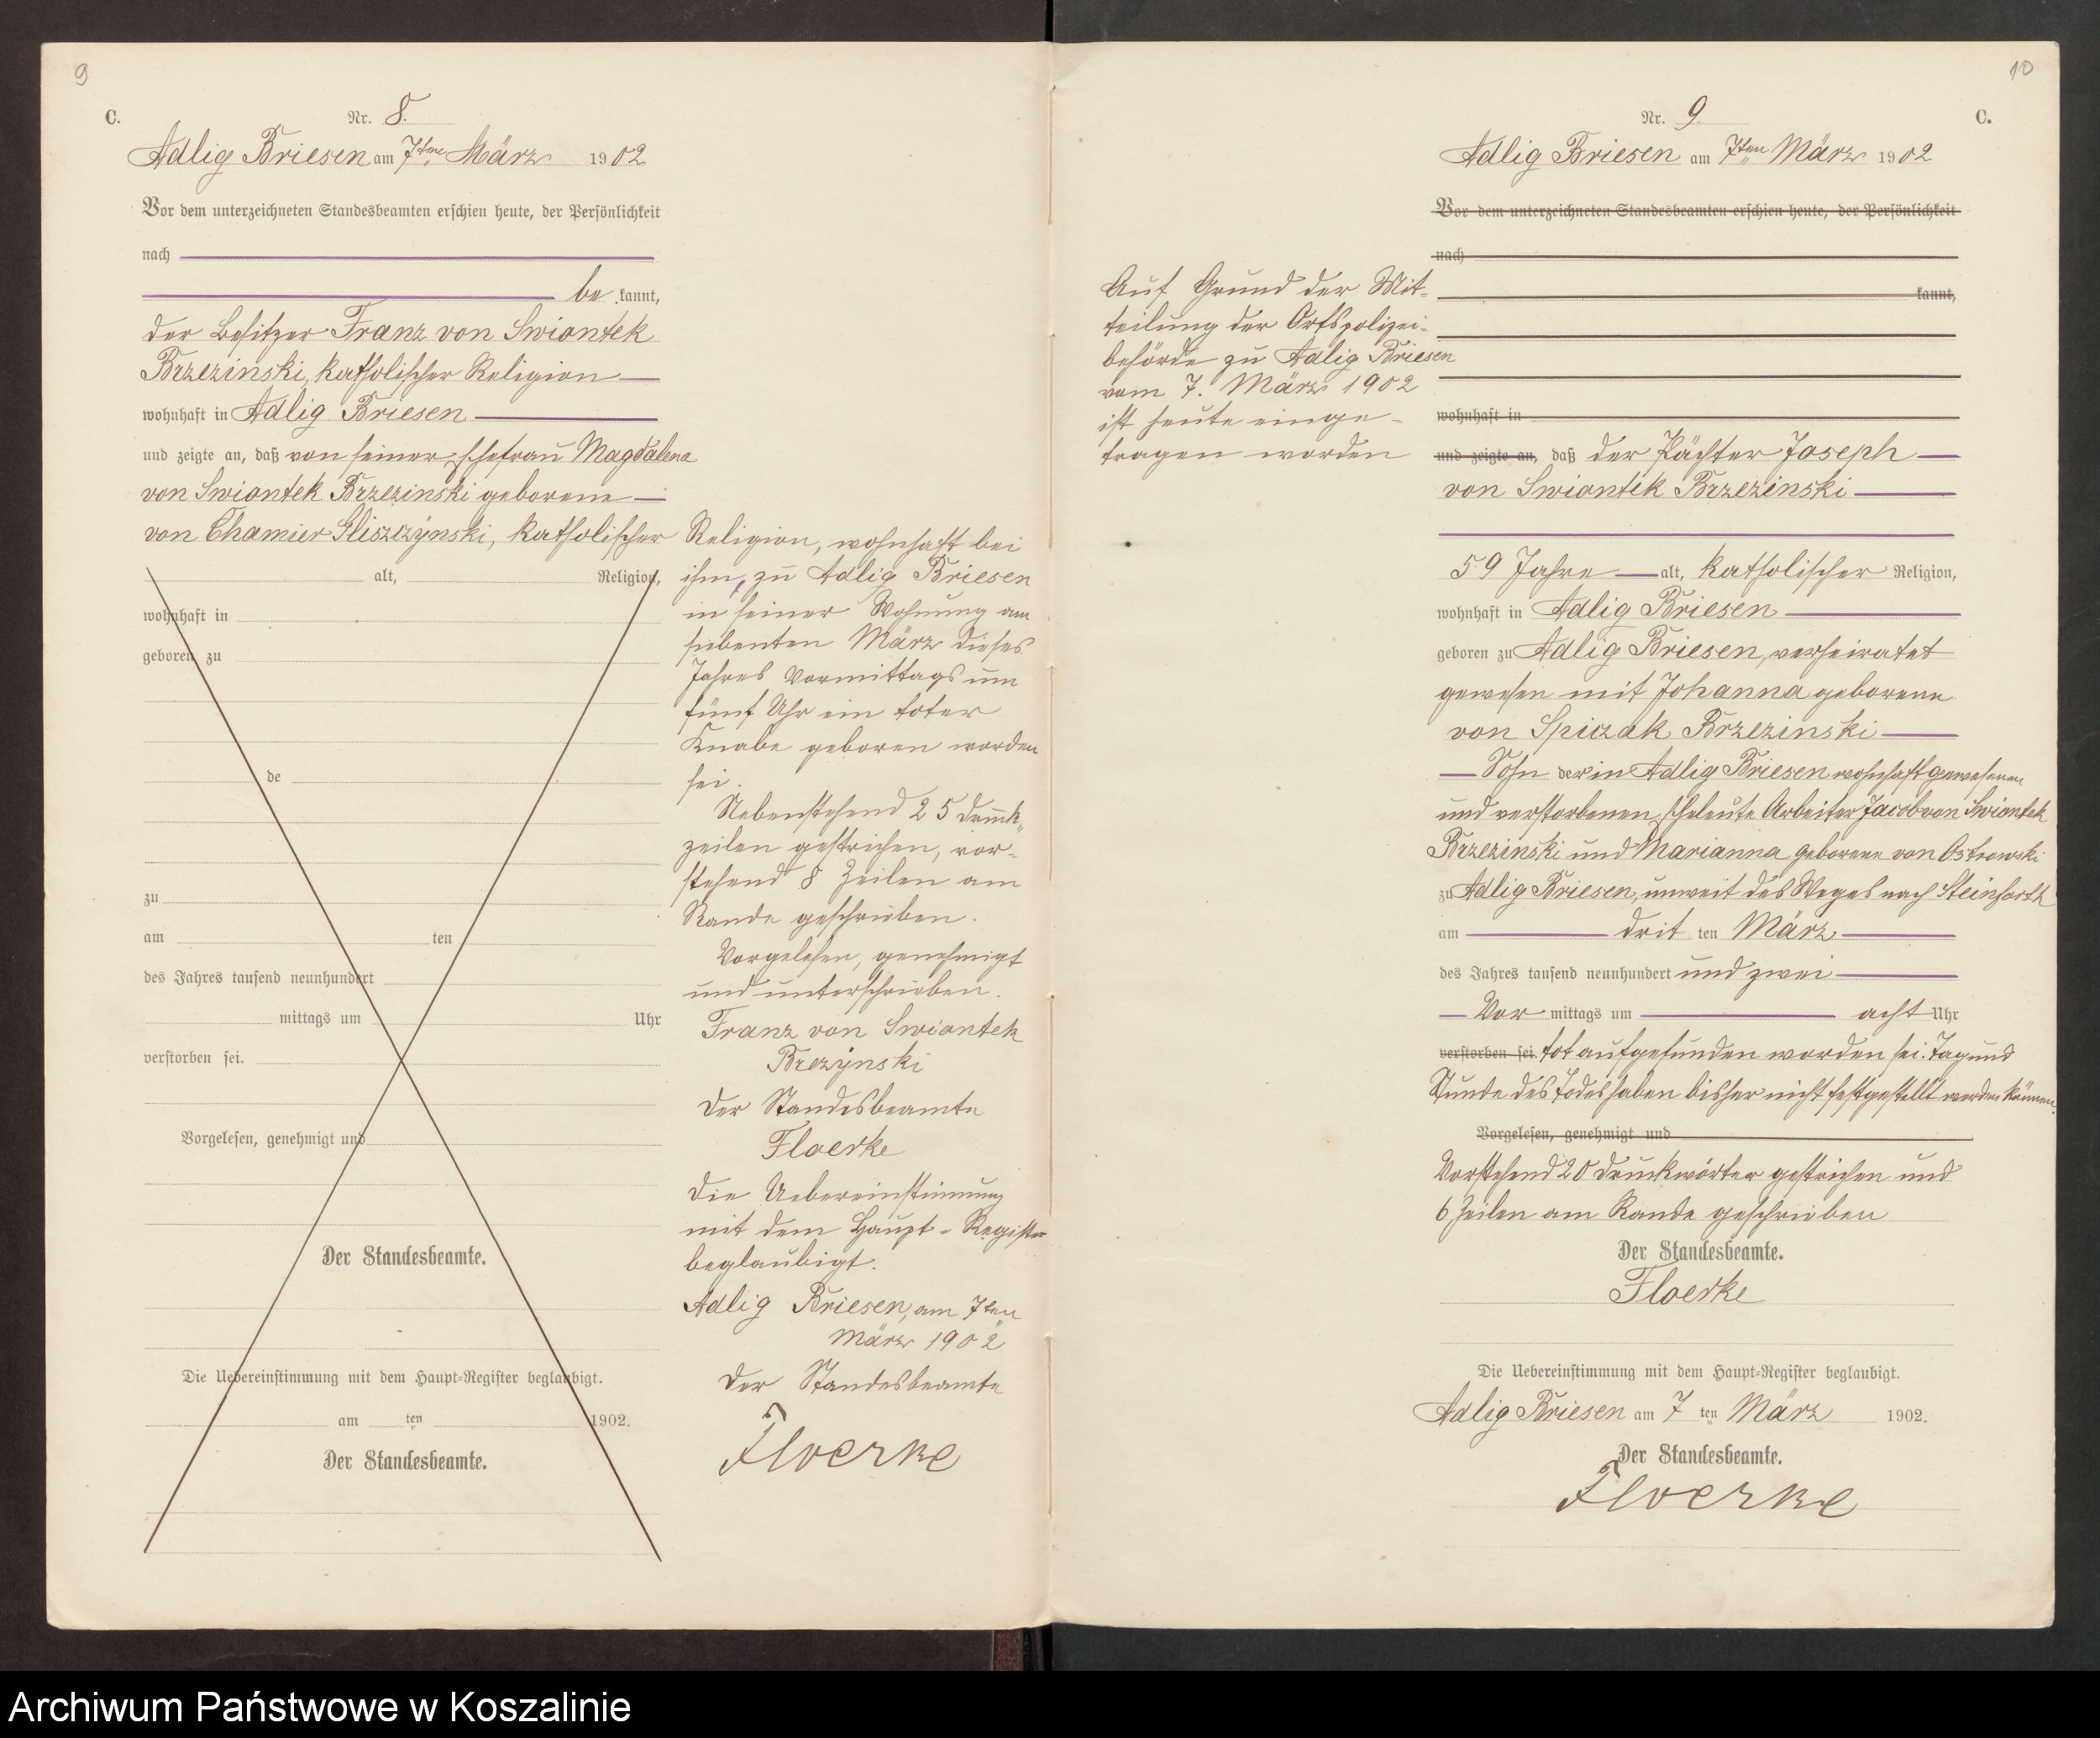 9
C.
Nr. 8.
Adlig Briesen am 7ten März 1902
Vor dem unterzeichneten Standesbeamten erschien heute, der Persönlichkeit
nach
be kannt,
der Besitzer Franz von Swiontek
Brzezinski, katholischer Religion
wohnhaft in Adlig Briesen
und zeigte an, daß von seiner Ehefrau Magdalena
von Swiontek Brzezinski geborene
von Chamier Gliszczynski, katholischer
alt, Religion,
wohnhaft in
geboren zu
de
zu
am ten
des Jahres tausend neunhundert
mittags um Uhr
verstorben sei.
Vorgelesen, genehmigt und
Der Standesbeamte.
Die Uebereinstimmung mit dem Haupt-Register beglaubigt.
am ten 1902.
Der Standesbeamte.
Religion, wohnhaft bei
ihm, zu Adlig Briesen
in seiner Wohnung am
siebenten März dieses
Jahres Vormittags um
fünf Uhr ein toter
Knabe geboren worden
sei.
Nebenstehend 25 Druck-
zeilen gestrichen, vor-
stehend 8 Zeilen am
Rande geschrieben.
Vorgelesen, genehmigt
und unterschrieben.
Franz von Swiontek
Brezynski
Der Standesbeamte
Floerke
Die Uebereinstimmung
mit dem Haupt-Register
beglaubigt.
Adlig Briesen, am 7ten
März 1902
Der Standesbeamte
Floerke
10
Nr. 9.
C.
Adlig Briesen am 7ten März 1902
Vor dem unterzeichneten Standesbeamten erschien heute, der Persönlichkeit
nach
kannt,
Auf Grund der Mit-
teilung der Ortspolizei-
behörde zu Adlig Briesen
vom 7. März 1902
ist heute einge-
tragen worden
wohnhaft in
und zeigte an, daß der Pächter Joseph
von Swiontek Brzezinski
59 Jahre alt, katholischer Religion,
wohnhaft in Adlig Briesen
geboren zu Adlig Briesen, verheiratet
gewesen mit Johanna geborene
von Spiczak Brzezinski
Sohn der in Adlig Briesen wohnhaft gewesenen
und verstorbenen Eheleute Arbeiter Jacob von Swiontek
Brzezinski und Marianna geborene von Ostrowski
zu Adlig Briesen, unweit des Weges nach Steinforth
am drit ten März
des Jahres tausend neunhundert und zwei
Vor mittags um acht Uhr
verstorben sei. tot aufgefunden worden sei. Tag und
Stunde des Todes haben bisher nicht festgestellt werden können.
Vorgelesen, genehmigt und
Vorstehend 20 Druckwörter gestrichen und
6 Zeilen am Rande geschrieben
Der Standesbeamte.
Floerke
Die Uebereinstimmung mit dem Haupt-Register beglaubigt.
Adlig Briesen am 7 ten März 1902.
Der Standesbeamte.
Floerke
Archiwum Państwowe w Koszalinie